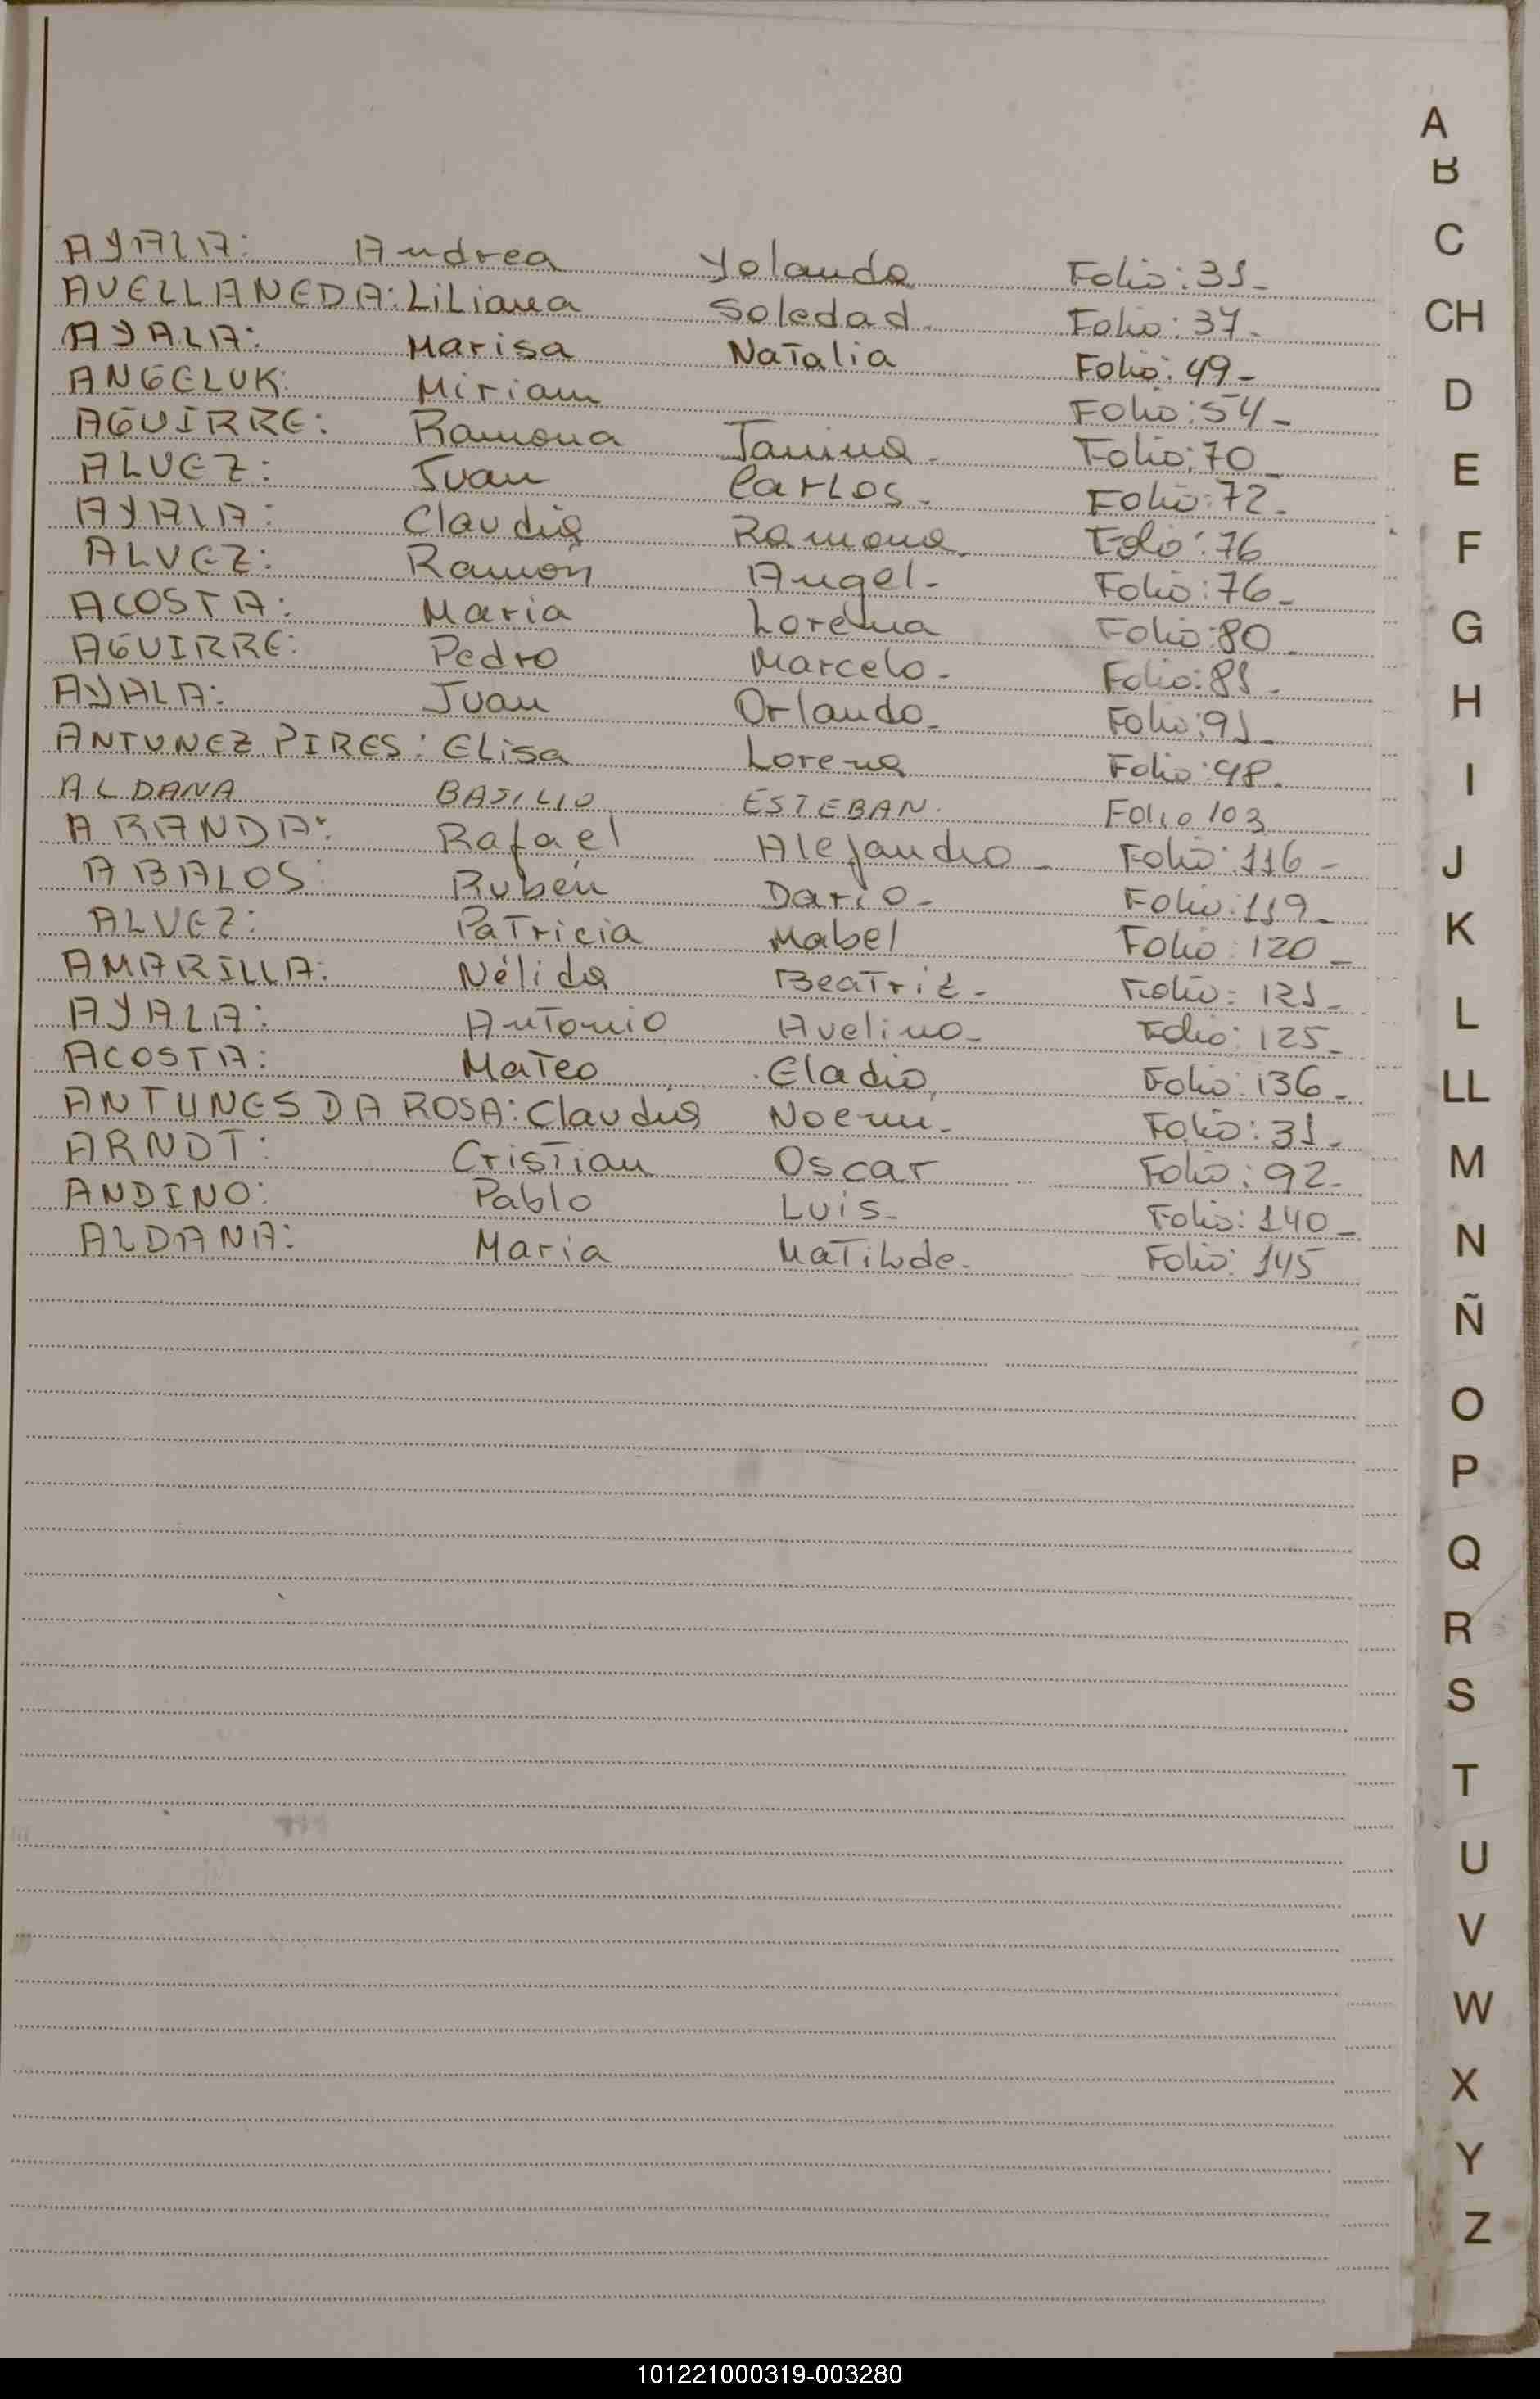 AYALA: Andrea Yolanda Folio: 31-
AVELLANEDA: Liliana Soledad. Folio: 37-
AYALA: Marisa Natalia Folio: 49-
ANGELUK: Miriam Folio: 54-
AGUIRRE: Ramona Janina. Folio: 70-
ALVEZ: Juan Carlos. Folio: 72-
AYALA: Claudia Ramona. Folio: 76
ALVEZ: Ramón Angel- Folio: 76-
ACOSTA: Maria Lorena Folio: 80-
AGUIRRE: Pedro Marcelo- Folio: 81-
AYALA: Juan Orlando- Folio: 91-
ANTUNEZ PIRES: Elisa Lorena Folio: 98-
ALDANA BASILIO ESTEBAN. Folio 103
ARANDA: Rafael Alejandro- Folio: 116-
ABALOS: Rubén Dario- Folio: 119-
ALVEZ: Patricia Mabel Folio: 120-
AMARILLA: Nélida Beatriz- Folio: 121-
AYALA: Antonio Avelino- Folio: 125-
ACOSTA: Mateo Eladio Folio: 136-
ANTUNES DA ROSA: Claudia Noemi. Folio: 31-
ARNDT: Cristian Oscar Folio: 92-
ANDINO: Pablo Luis- Folio: 140-
ALDANA: Maria Matilde- Folio: 145
A
B
C
CH
D
E
F
G
H
I
J
K
L
LL
M
N
Ñ
O
P
Q
R
S
T
U
V
W
X
Y
Z
101221000319-003280